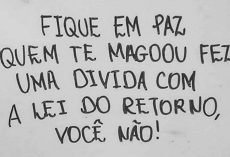 FIQUE EM PAZ
QUEM TE MAGOOU FEZ
UMA DIVIDA COM
A LEI DO RETORNO,
VOCÊ NÃO!